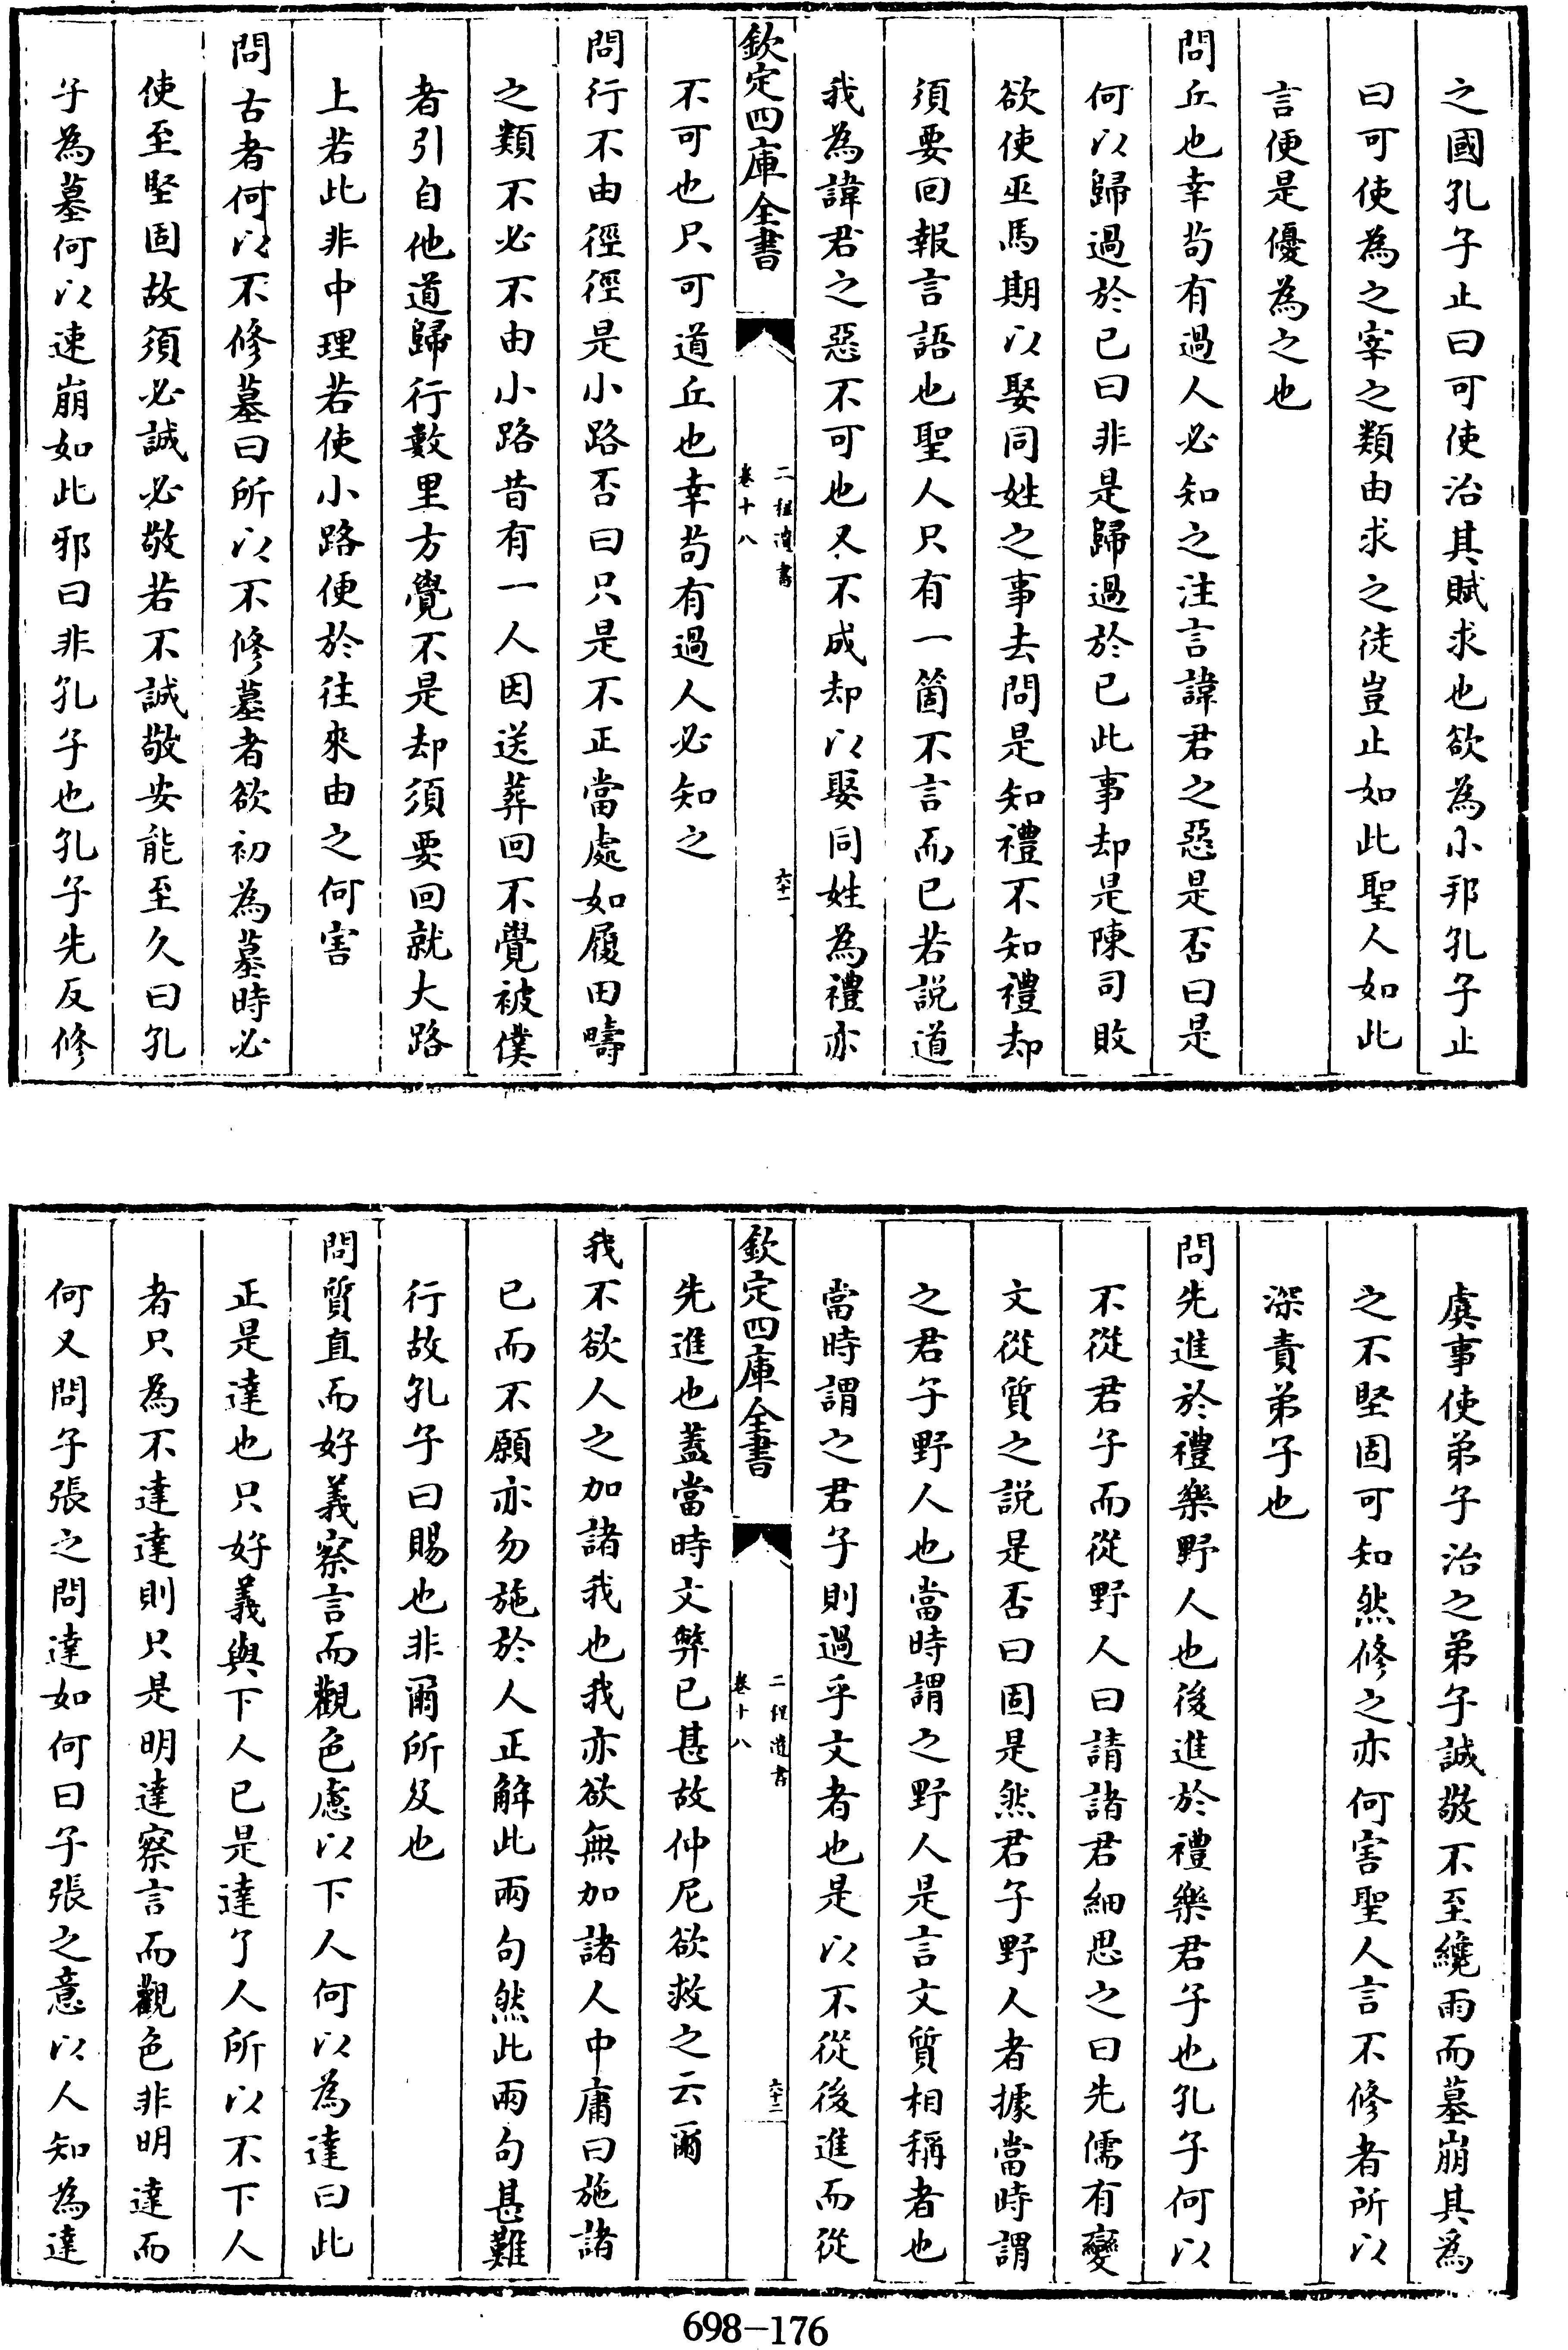 之國孔子止曰可使治其賦求也欲為小邦孔子止
曰可使為之宰之類由求之徒豈止如此聖人如此
言便是優為之也
問丘也幸苟有過人必知之注言諱君之惡是否曰是
何以歸過於己曰非是歸過於已此事却是陳司敗
欲使巫馬期以娶同姓之事去問是知禮不知禮却
須要回報言語也聖人只有一箇不言而已若説道
我為諱君之惡不可也又不成却以娶同姓為禮亦
欽定四庫全書
二程遺書
卷十八
六十一
不可也只可道丘也幸苟有過人必知之
問行不由徑徑是小路否曰只是不正當處如履田疇
之類不必不由小路昔有一人因送葬回不覺被僕
者引自他道歸行數里方覺不是却須要回就大路
上若此非中理若使小路便於往來由之何害
問古者何以不修墓曰所以不修墓者欲初為墓時必
使至堅固故須必誠必敬若不誠敬安能至久曰孔
子為墓何以速崩如此邪曰非孔子也孔子先反修
虞事使弟子治之弟子誠敬不至纔雨而墓崩其為
之不堅固可知然修之亦何害聖人言不修者所以
深責弟子也
問先進於禮樂野人也後進於禮樂君子也孔子何以
不從君子而從野人曰請諸君細思之曰先儒有變
文從質之説是否曰固是然君子野人者據當時謂
之君子野人也當時謂之野人是言文質相稱者也
當時謂之君子則過乎文者也是以不從後進而從
欽定四庫全書
二程遺書
卷十八
六十二
先進也蓋當時文弊已甚故仲尼欲救之云爾
我不欲人之加諸我也我亦欲無加諸人中庸曰施諸
已而不願亦勿施於人正解此兩句然此兩句甚難
行故孔子曰賜也非爾所及也
問質直而好義察言而觀色慮以下人何以為達曰此
正是達也只好義與下人已是達了人所以不下人
者只為不達達則只是明達察言而觀色非明達而
何又問子張之問達如何曰子張之意以人知為達
698-176